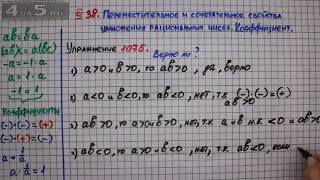 4 на 5.ru
§ 38. Переместительное и сочетательное свойства
умножения рациональных чисел. Коэффициент.
Упражнение 1076. Верно ли?
1) a>0 и b>0, то ab>0, да, верно
2) a<0 и b<0, то ab<0, нет, т.к. (-)·(-)=(+)
ab>0
3) ab>0, то a>0 и b>0, нет, т.к. a и b м.б. <0 и ab>0
4) ab<0, то a>0 и b<0, нет, т.к. ab<0, если
ab=ba
(ab)c=a(bc)
-a=-1·a
a=1·a
-1·1=-1
Коэффициенты
(-)·(-)=(+)
(-)·(+)=(-)
a · 1/a = 1